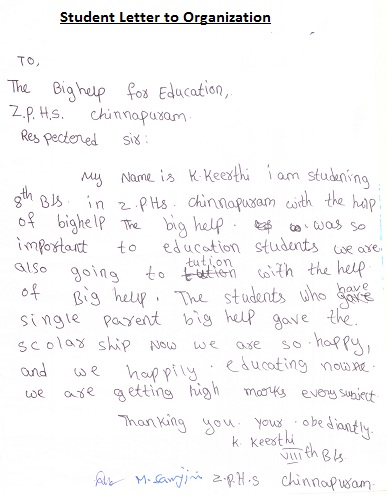 Student Letter to Organization
To,
The Big help for Education,
Z.P.H.S. chinnapuram.
Respectored sir:
My Name is K.Keerthi i am studening
8th B/s. in Z.PHs. chinnapuram with the help
of bighelp The big help. was so
important to education students we are
also going to tution with the help
of Big help. The students who have
single parent big help gave the.
scolar ship Now we are so happy,
and we happily educating now
we are getting high marks every subject.
Thanking you. your obediantly.
K. Keerthi
VIIIth B/s
Z.P.H.S chinnapuram.